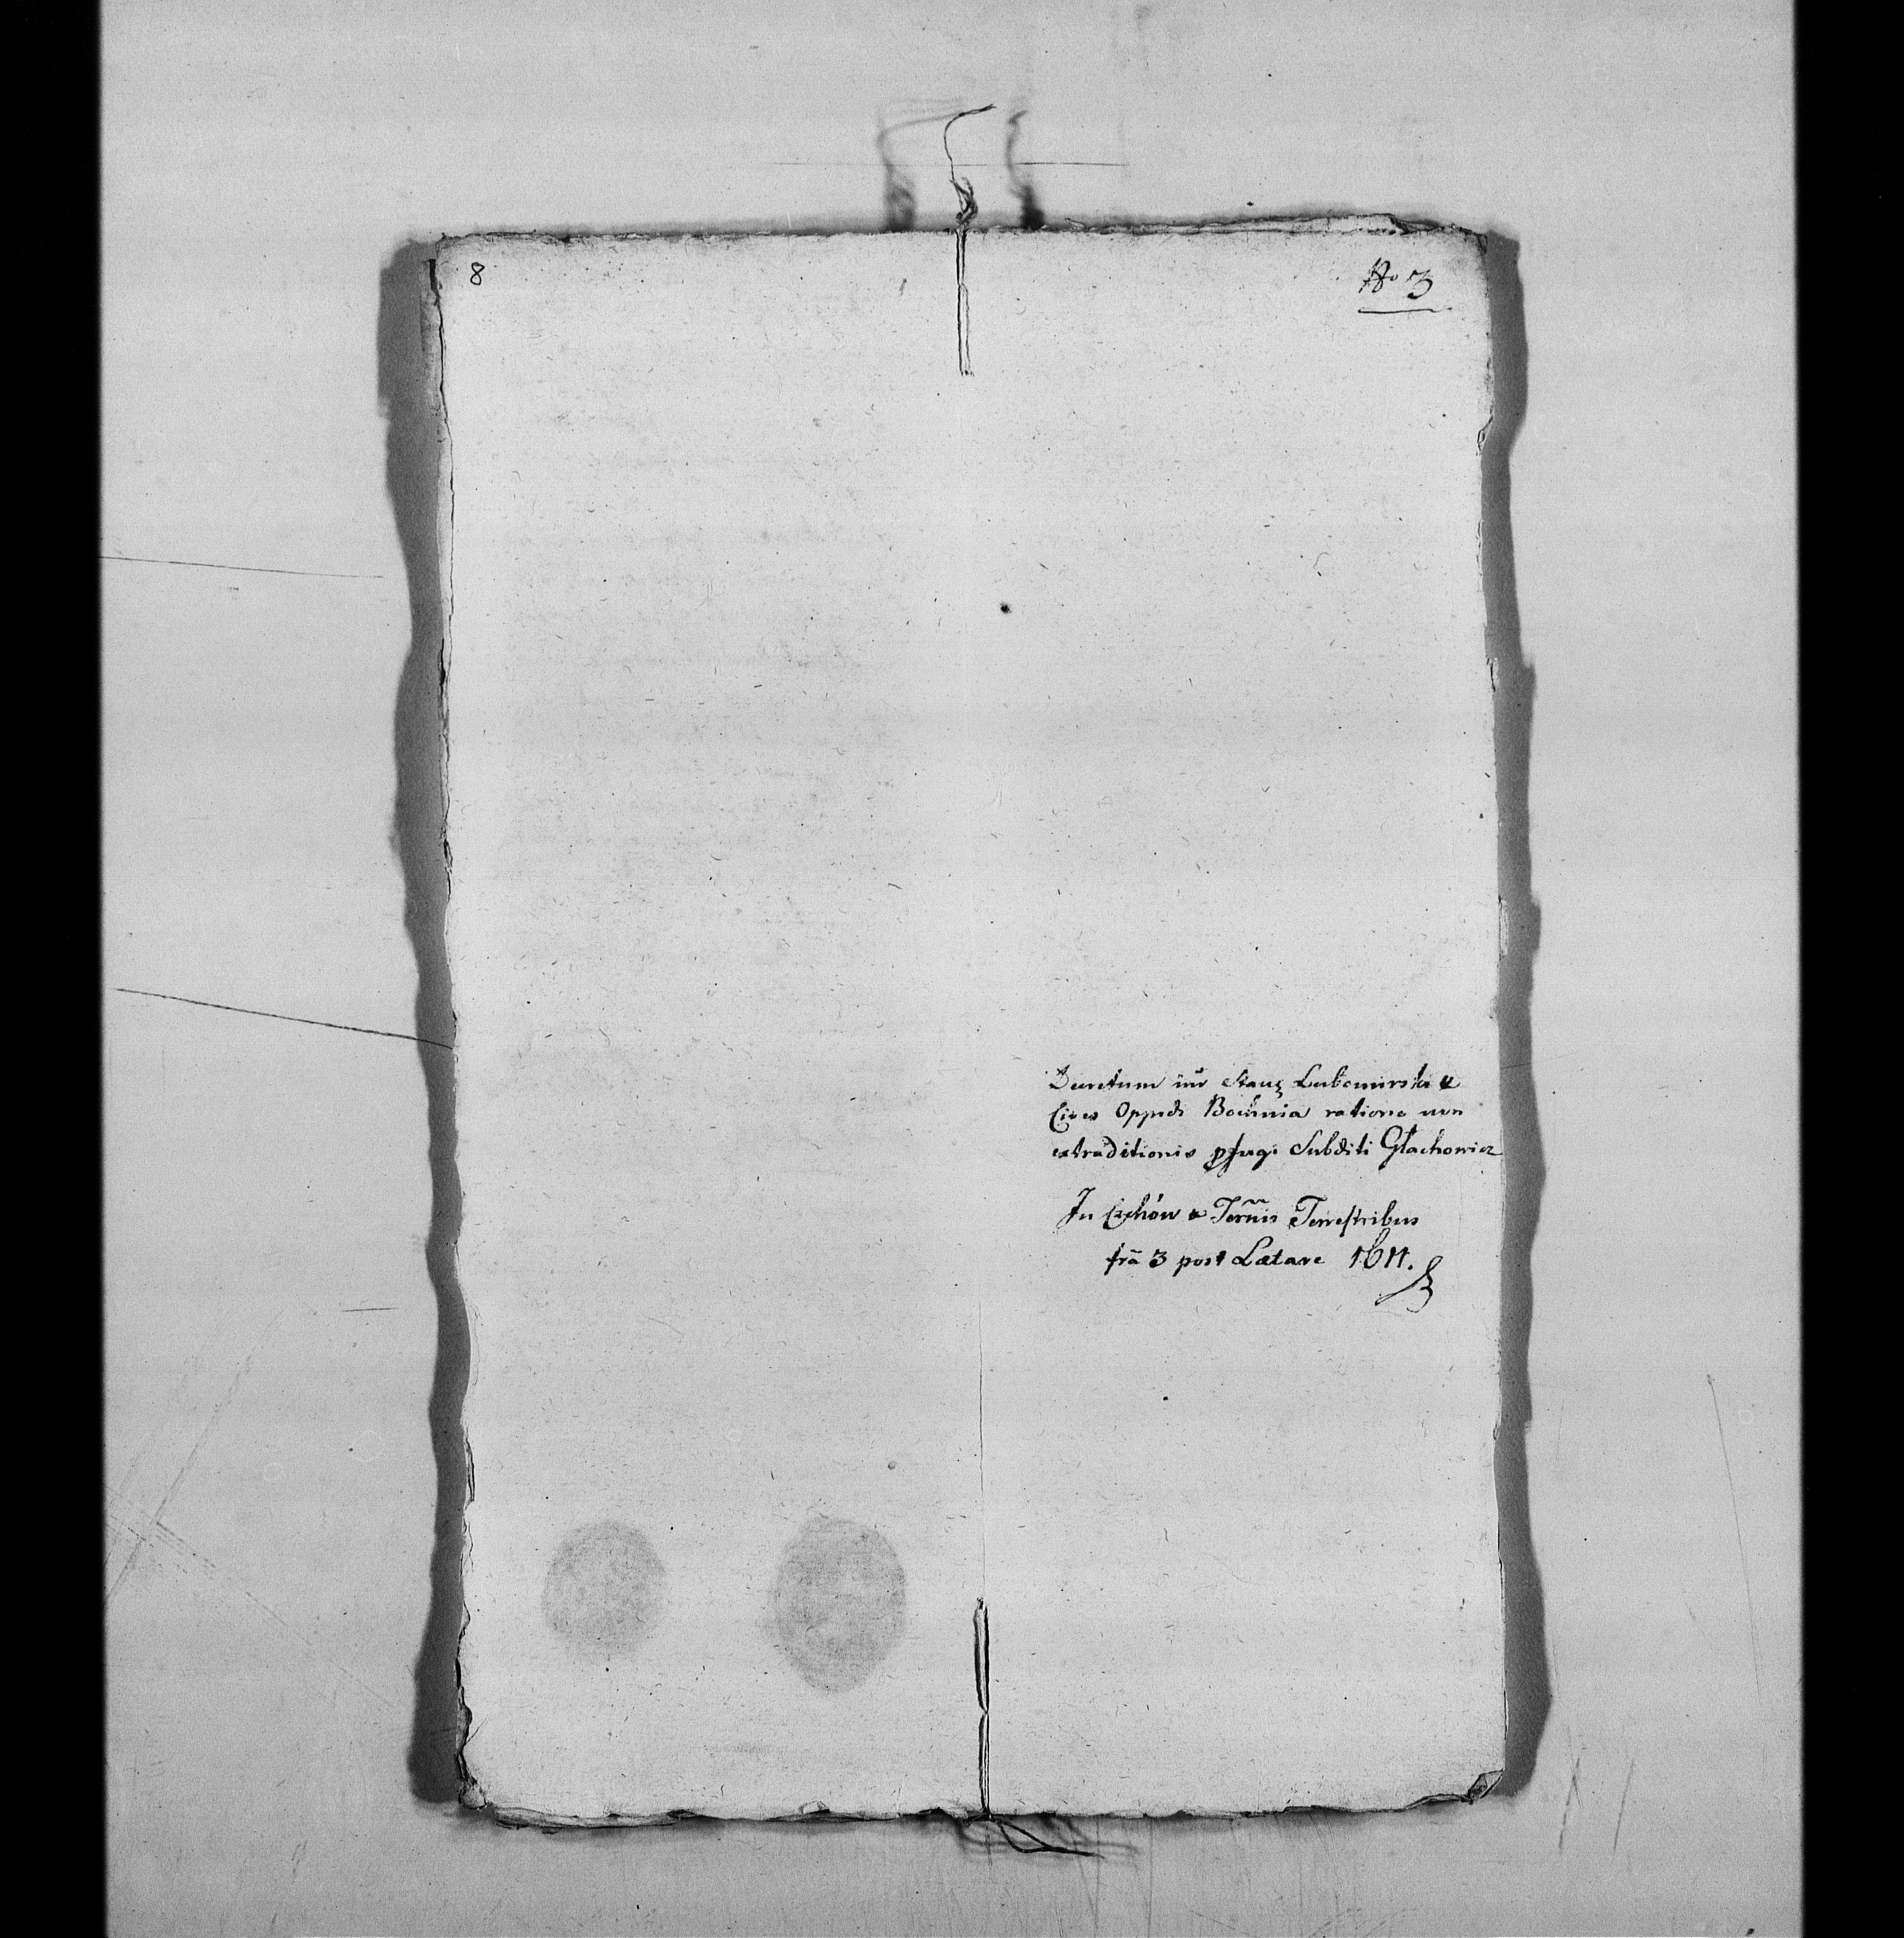 8
No 3
Decretum inr̃ Stanz Lubomirski &
Cives Oppidi Bochnia ratione non
extraditionis ꝓfugi Subditi Głachowicz
In Czchów & Term̃is Terrestribus
frã 3 post Lætare 1611.